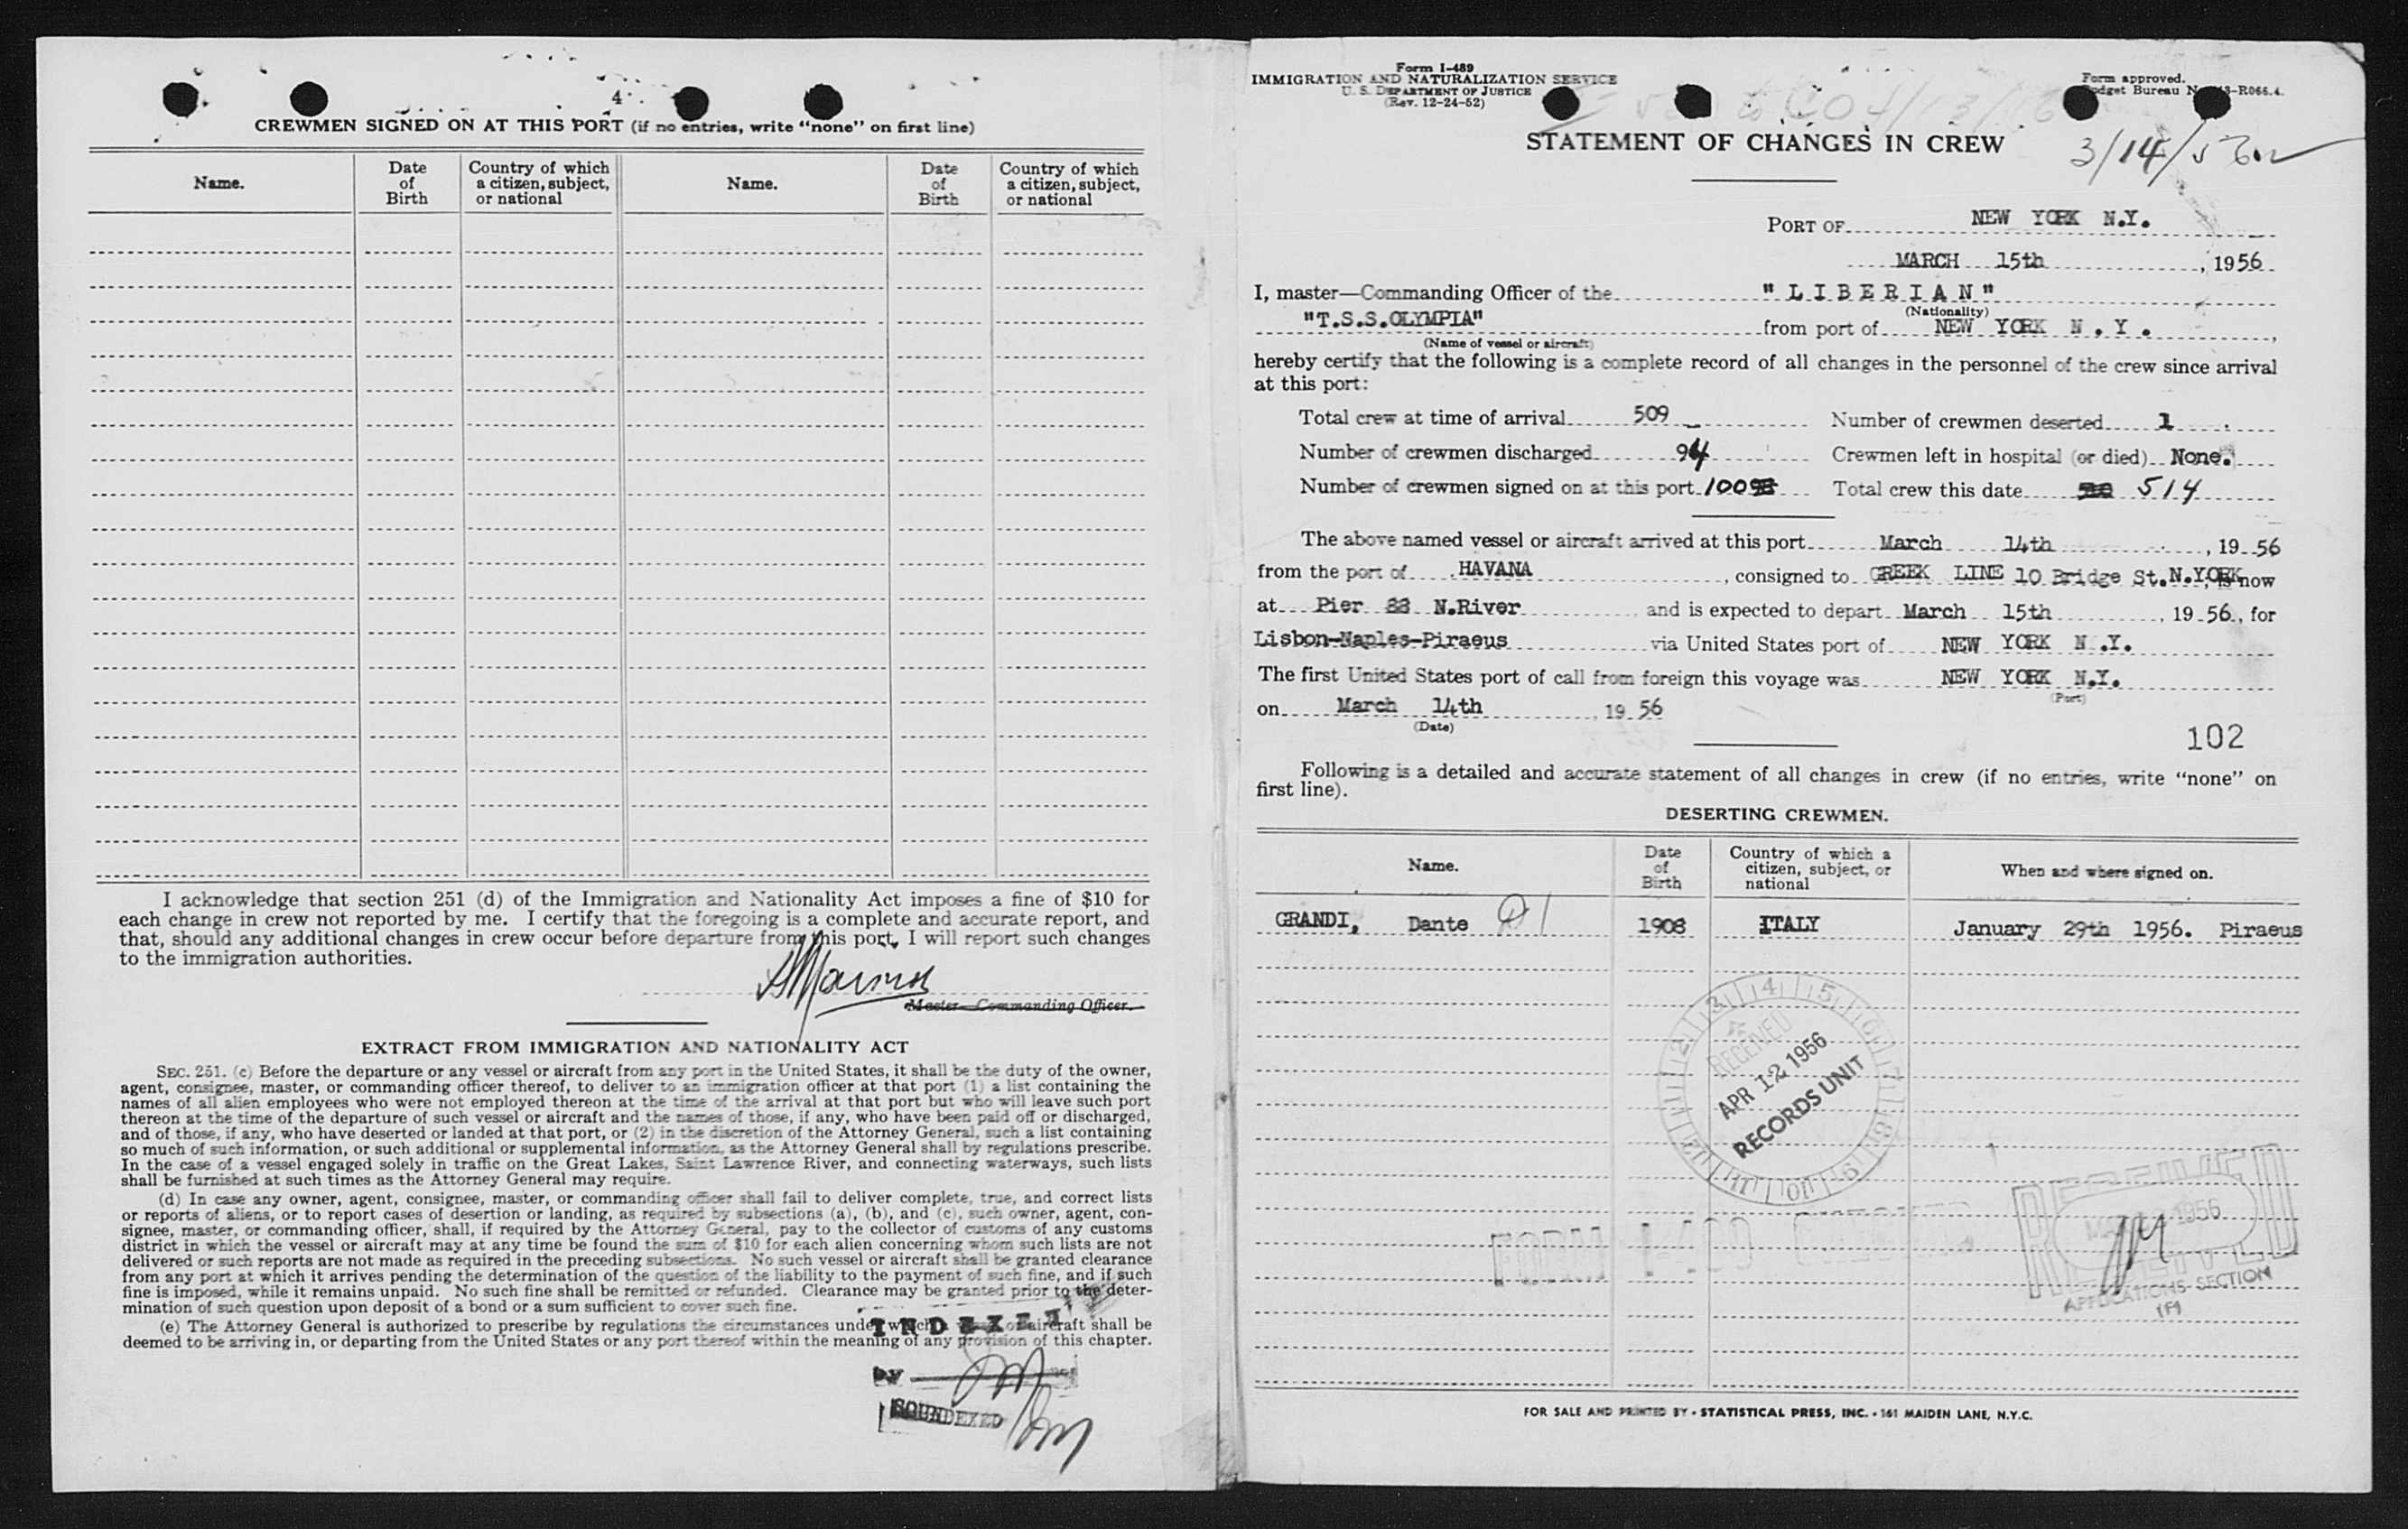 4
CREWMEN SIGNED ON AT THIS PORT (if no entries, write “none” on first line)
Name.
Date of Birth
Country of which a citizen, subject, or national
Name.
Date of Birth
Country of which a citizen, subject, or national
I acknowledge that section 251 (d) of the Immigration and Nationality Act imposes a fine of $10 for
each change in crew not reported by me. I certify that the foregoing is a complete and accurate report, and
that, should any additional changes in crew occur before departure from this port, I will report such changes
to the immigration authorities.
Master—Commanding Officer.
EXTRACT FROM IMMIGRATION AND NATIONALITY ACT
SEC. 251. (c) Before the departure or any vessel or aircraft from any port in the United States, it shall be the duty of the owner,
agent, consignee, master, or commanding officer thereof, to deliver to an immigration officer at that port (1) a list containing the
names of all alien employees who were not employed thereon at the time of the arrival at that port but who will leave such port
thereon at the time of the departure of such vessel or aircraft and the names of those, if any, who have been paid off or discharged,
and of those, if any, who have deserted or landed at that port, or (2) in the discretion of the Attorney General, such a list containing
so much of such information, or such additional or supplemental information, as the Attorney General shall by regulations prescribe.
In the case of a vessel engaged solely in traffic on the Great Lakes, Saint Lawrence River, and connecting waterways, such lists
shall be furnished at such times as the Attorney General may require.
(d) In case any owner, agent, consignee, master, or commanding officer shall fail to deliver complete, true, and correct lists
or reports of aliens, or to report cases of desertion or landing, as required by subsections (a), (b), and (c), such owner, agent, con-
signee, master, or commanding officer, shall, if required by the Attorney General, pay to the collector of customs of any customs
district in which the vessel or aircraft may at any time be found the sum of $10 for each alien concerning whom such lists are not
delivered or such reports are not made as required in the preceding subsections. No such vessel or aircraft shall be granted clearance
from any port at which it arrives pending the determination of the question of the liability to the payment of such fine, and if such
fine is imposed, while it remains unpaid. No such fine shall be remitted or refunded. Clearance may be granted prior to the deter-
mination of such question upon deposit of a bond or a sum sufficient to cover such fine.
(e) The Attorney General is authorized to prescribe by regulations the circumstances under which a or aircraft shall be
deemed to be arriving in, or departing from the United States or any port thereof within the meaning of any provision of this chapter.
INDEXED
by
SOUNDEXED
Form I-489
IMMIGRATION AND NATURALIZATION SERVICE
U. S. DEPARTMENT OF JUSTICE
(Rev. 12-24-52)
Form approved.
Budget Bureau N 3-R066.4.
STATEMENT OF CHANGES IN CREW
3/14/56
PORT OF NEW YORK N.Y.
MARCH 15th, 1956
I, master—Commanding Officer of the "LIBERIAN"
(Nationality)
"T.S.S.OLYMPIA" from port of NEW YORK N.Y.,
(Name of vessel or aircraft)
hereby certify that the following is a complete record of all changes in the personnel of the crew since arrival
at this port:
Total crew at time of arrival 509 Number of crewmen deserted 1
Number of crewmen discharged 94 Crewmen left in hospital (or died) None.
Number of crewmen signed on at this port 100 Total crew this date 514
The above named vessel or aircraft arrived at this port March 14th, 19 56
from the port of HAVANA, consigned to GREEK LINE 10 Bridge St.N.YORK, is now
at Pier 88 N.River and is expected to depart March 15th, 19 56, for
Lisbon-Naples-Piraeus via United States port of NEW YORK N.Y.
The first United States port of call from foreign this voyage was NEW YORK N.Y.
(Port)
on March 14th, 19 56
(Date)
102
Following is a detailed and accurate statement of all changes in crew (if no entries, write “none” on
first line).
DESERTING CREWMEN.
Name.
Date of Birth
Country of which a citizen, subject, or national
When and where signed on.
GRANDI, Dante 1908 ITALY January 29th 1956. Piraeus
RECEIVED
APR 12 1956
RECORDS UNIT
RECEIVED
1956
APPLICATIONS SECTION
(F)
FORM I-489
FOR SALE AND PRINTED BY • STATISTICAL PRESS, INC. • 161 MAIDEN LANE, N.Y.C.